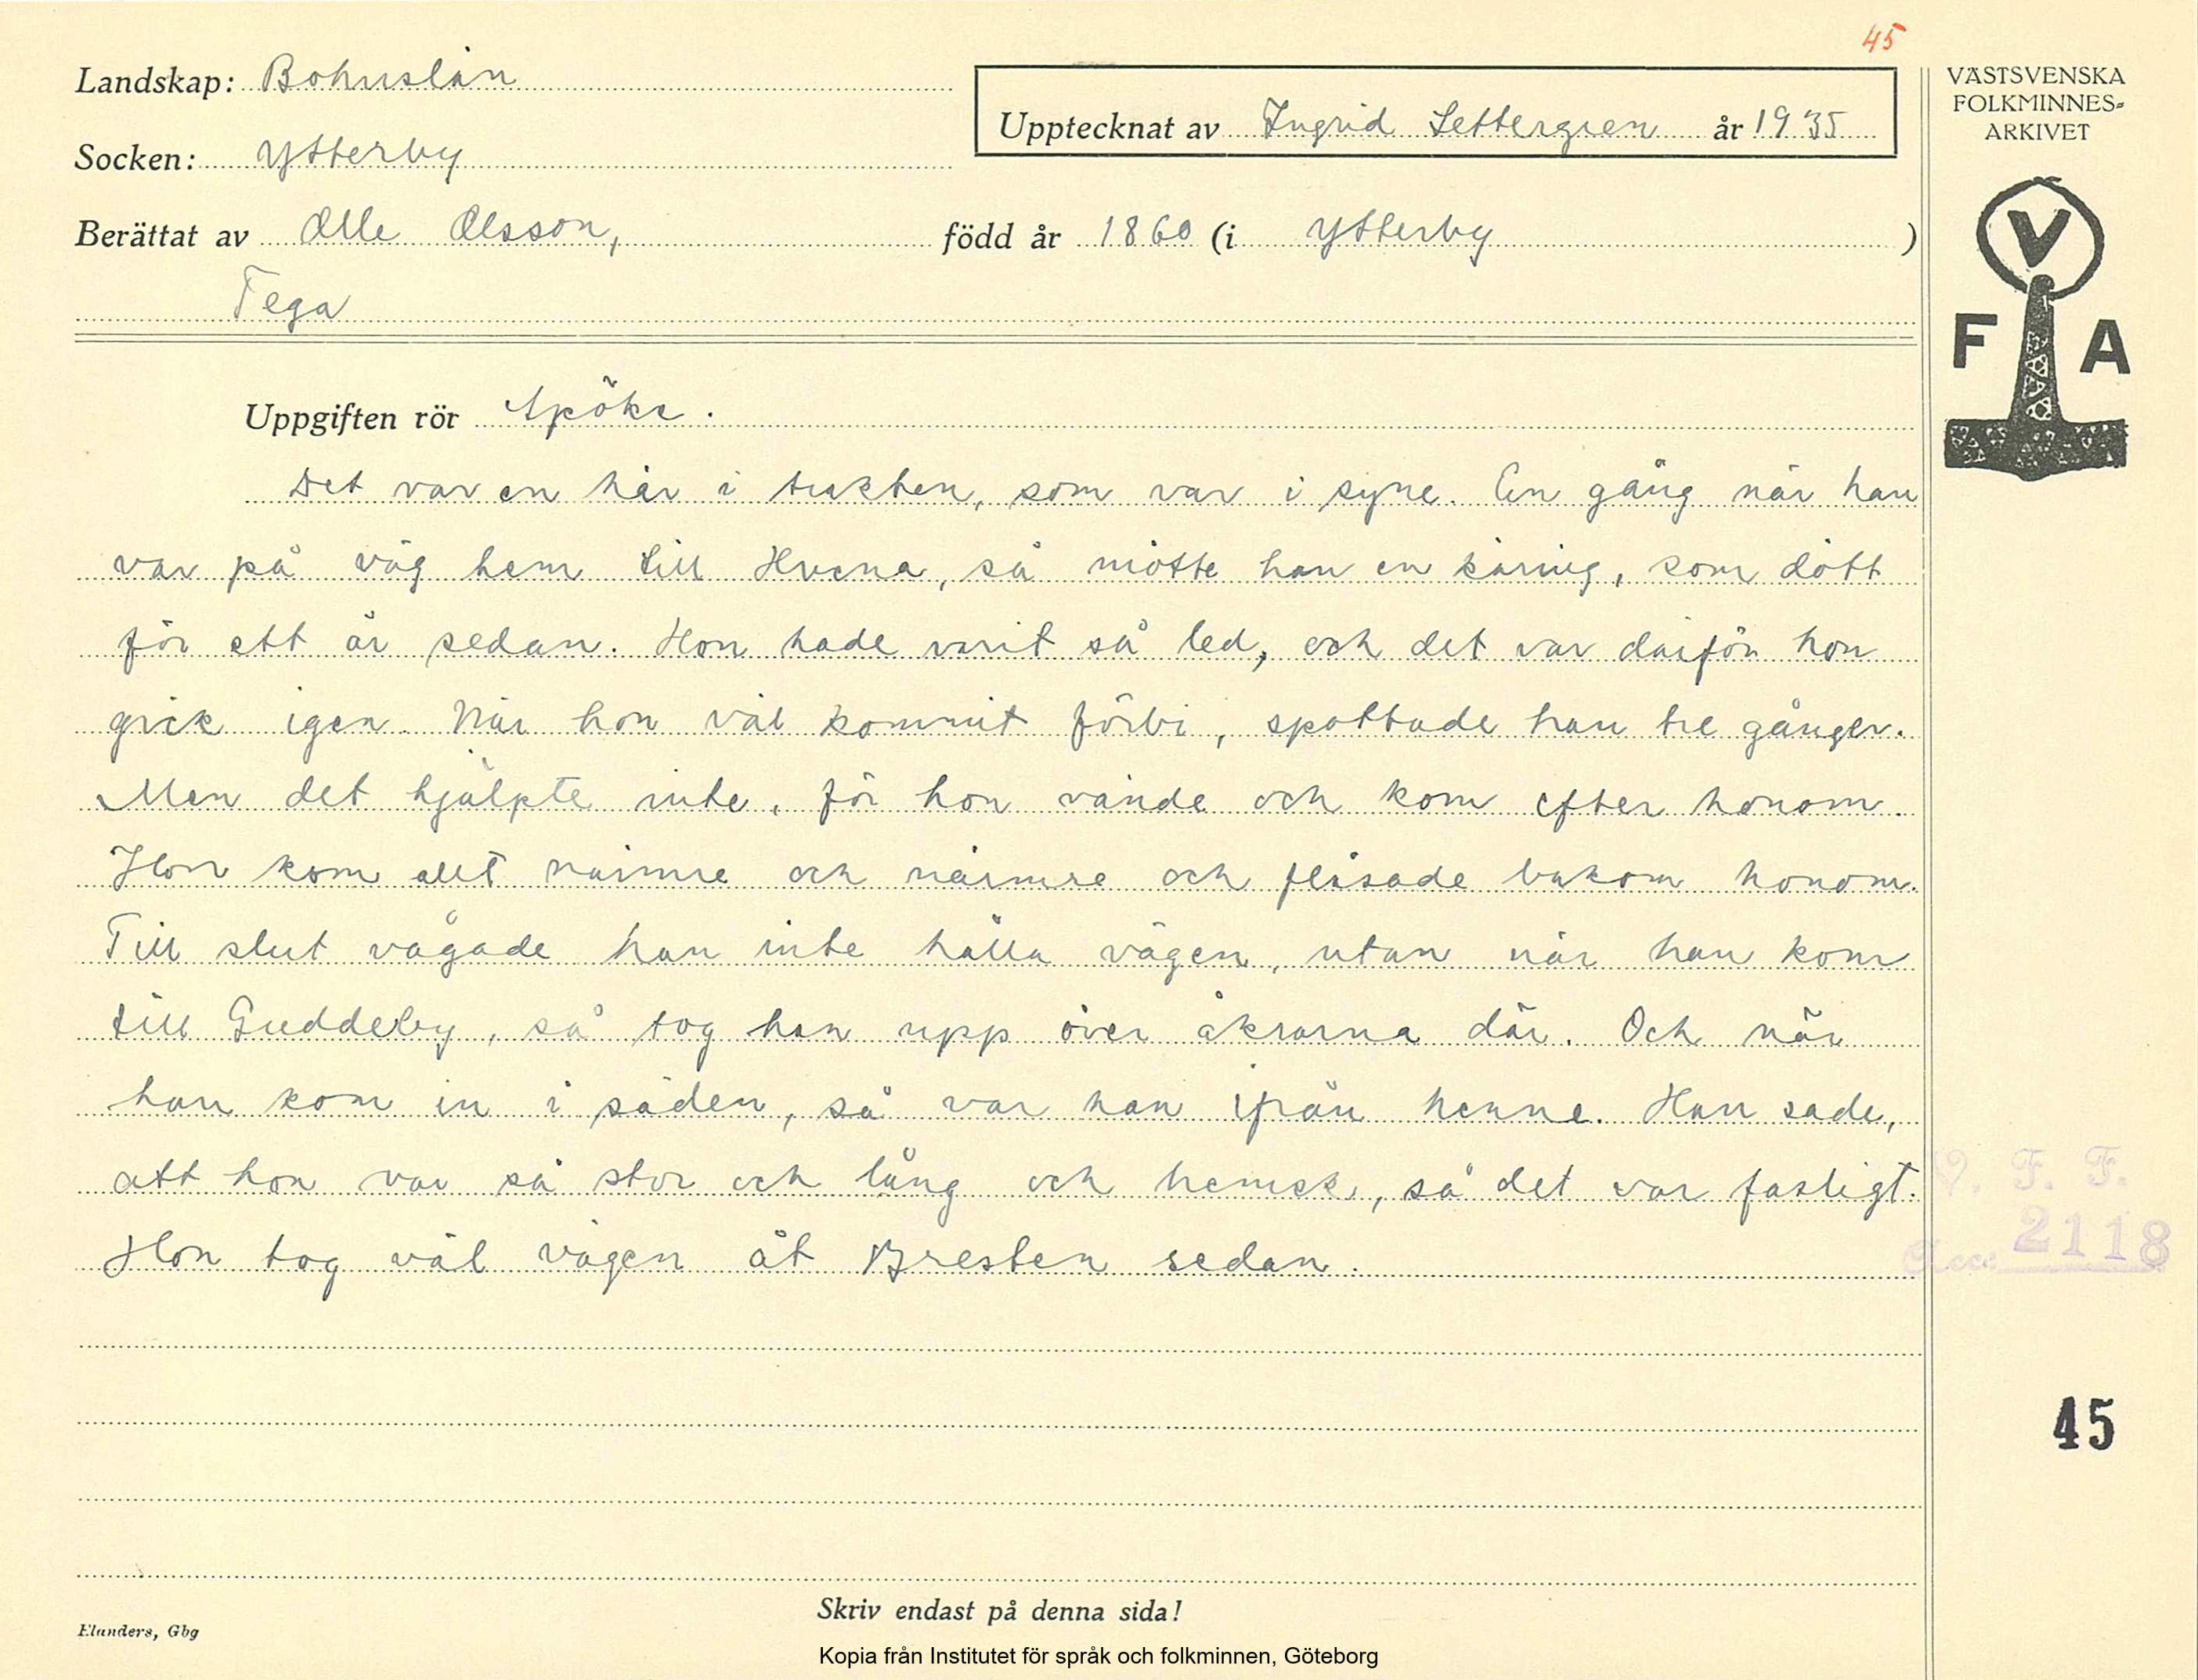 45
Landskap: Bohuslän
Upptecknat av Ingrid Settergren år 1935
VÄSTSVENSKA
FOLKMINNES-
ARKIVET
Socken: Ytterby
Berättat av Olle Olsson, född år 1860 (i Ytterby )
Tega
V
F A
Uppgiften rör Spöke.
Det var en här i trakten, som var i syne. En gång när han
var på väg hem till Hvena, så mötte han en käring, som dött
för ett år sedan. Hon hade varit så led, och det var därför hon
gick igen. När hon väl kommit förbi, spottade han tre gånger.
Men det hjälpte inte, för hon vände och kom efter honom.
Hon kom allt närmre och närmre och flåsade bakom honom.
Till slut vågade han inte hålla vägen, utan när han kom
till Guddeby, så tog han upp över åkrarna där. Och när
han kom in i säden, så var han ifrån henne. Han sade,
att hon var så stor och lång och hemsk, så det var fasligt.
Hon tog väl vägen åt Bresten sedan.
V. F. F.
Acc: 2118
45
Skriv endast på denna sida!
Elanders, Gbg
Kopia från Institutet för språk och folkminnen, Göteborg